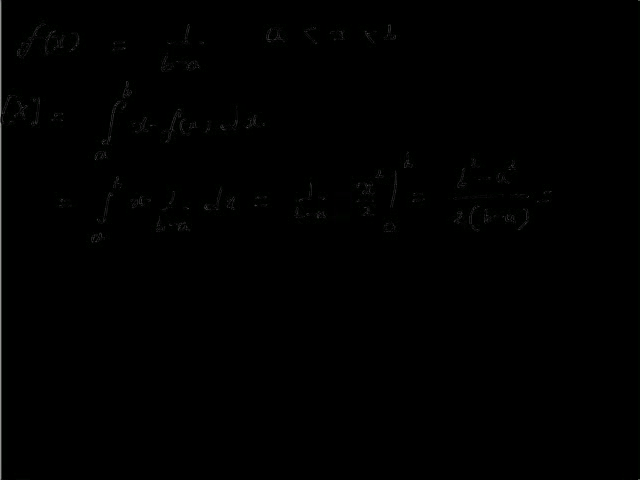 f(x) = 1/(b-a) a < x < b
[X] = ∫_a^b x · f(x) dx
= ∫_a^b x · 1/(b-a) dx = 1/(b-a) x²/2 |_a^b = (b² - a²)/(2(b-a)) =